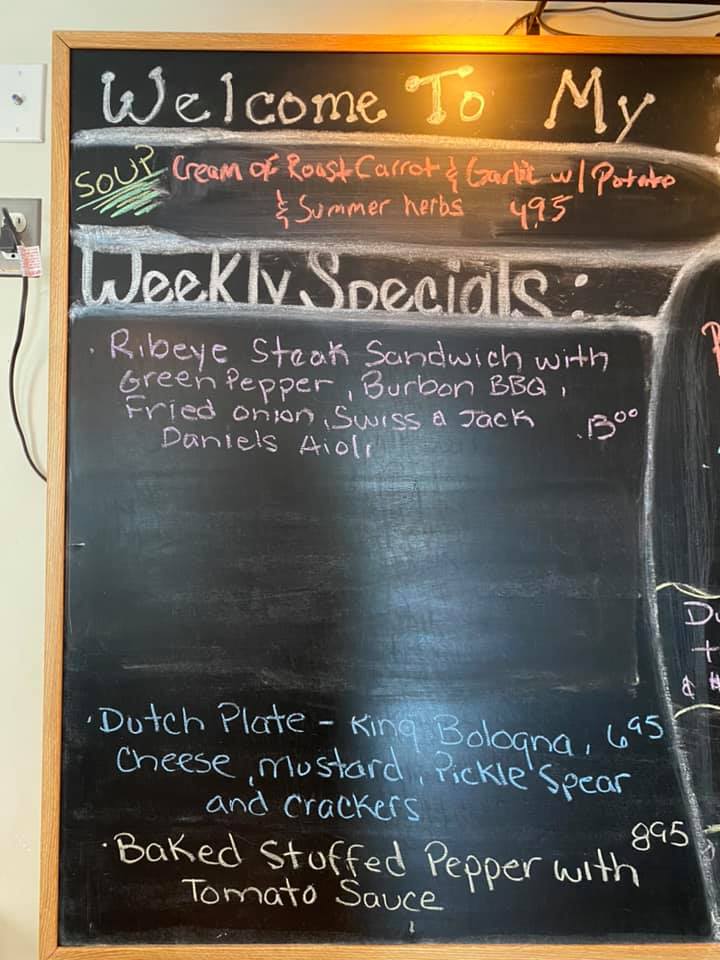 Welcome To My
SOUP Cream of Roast Carrot & Garlic w/ Potato
& Summer herbs 495
Weekly Specials:
· Ribeye Steak Sandwich with
Green Pepper, Burbon BBQ,
Fried onion, Swiss a Jack 13⁰⁰
Daniels Aioli
· Dutch Plate - King Bologna, 6⁹⁵
Cheese, Mustard, Pickle Spear
and Crackers
· Baked Stuffed Pepper with 8⁹⁵
Tomato Sauce